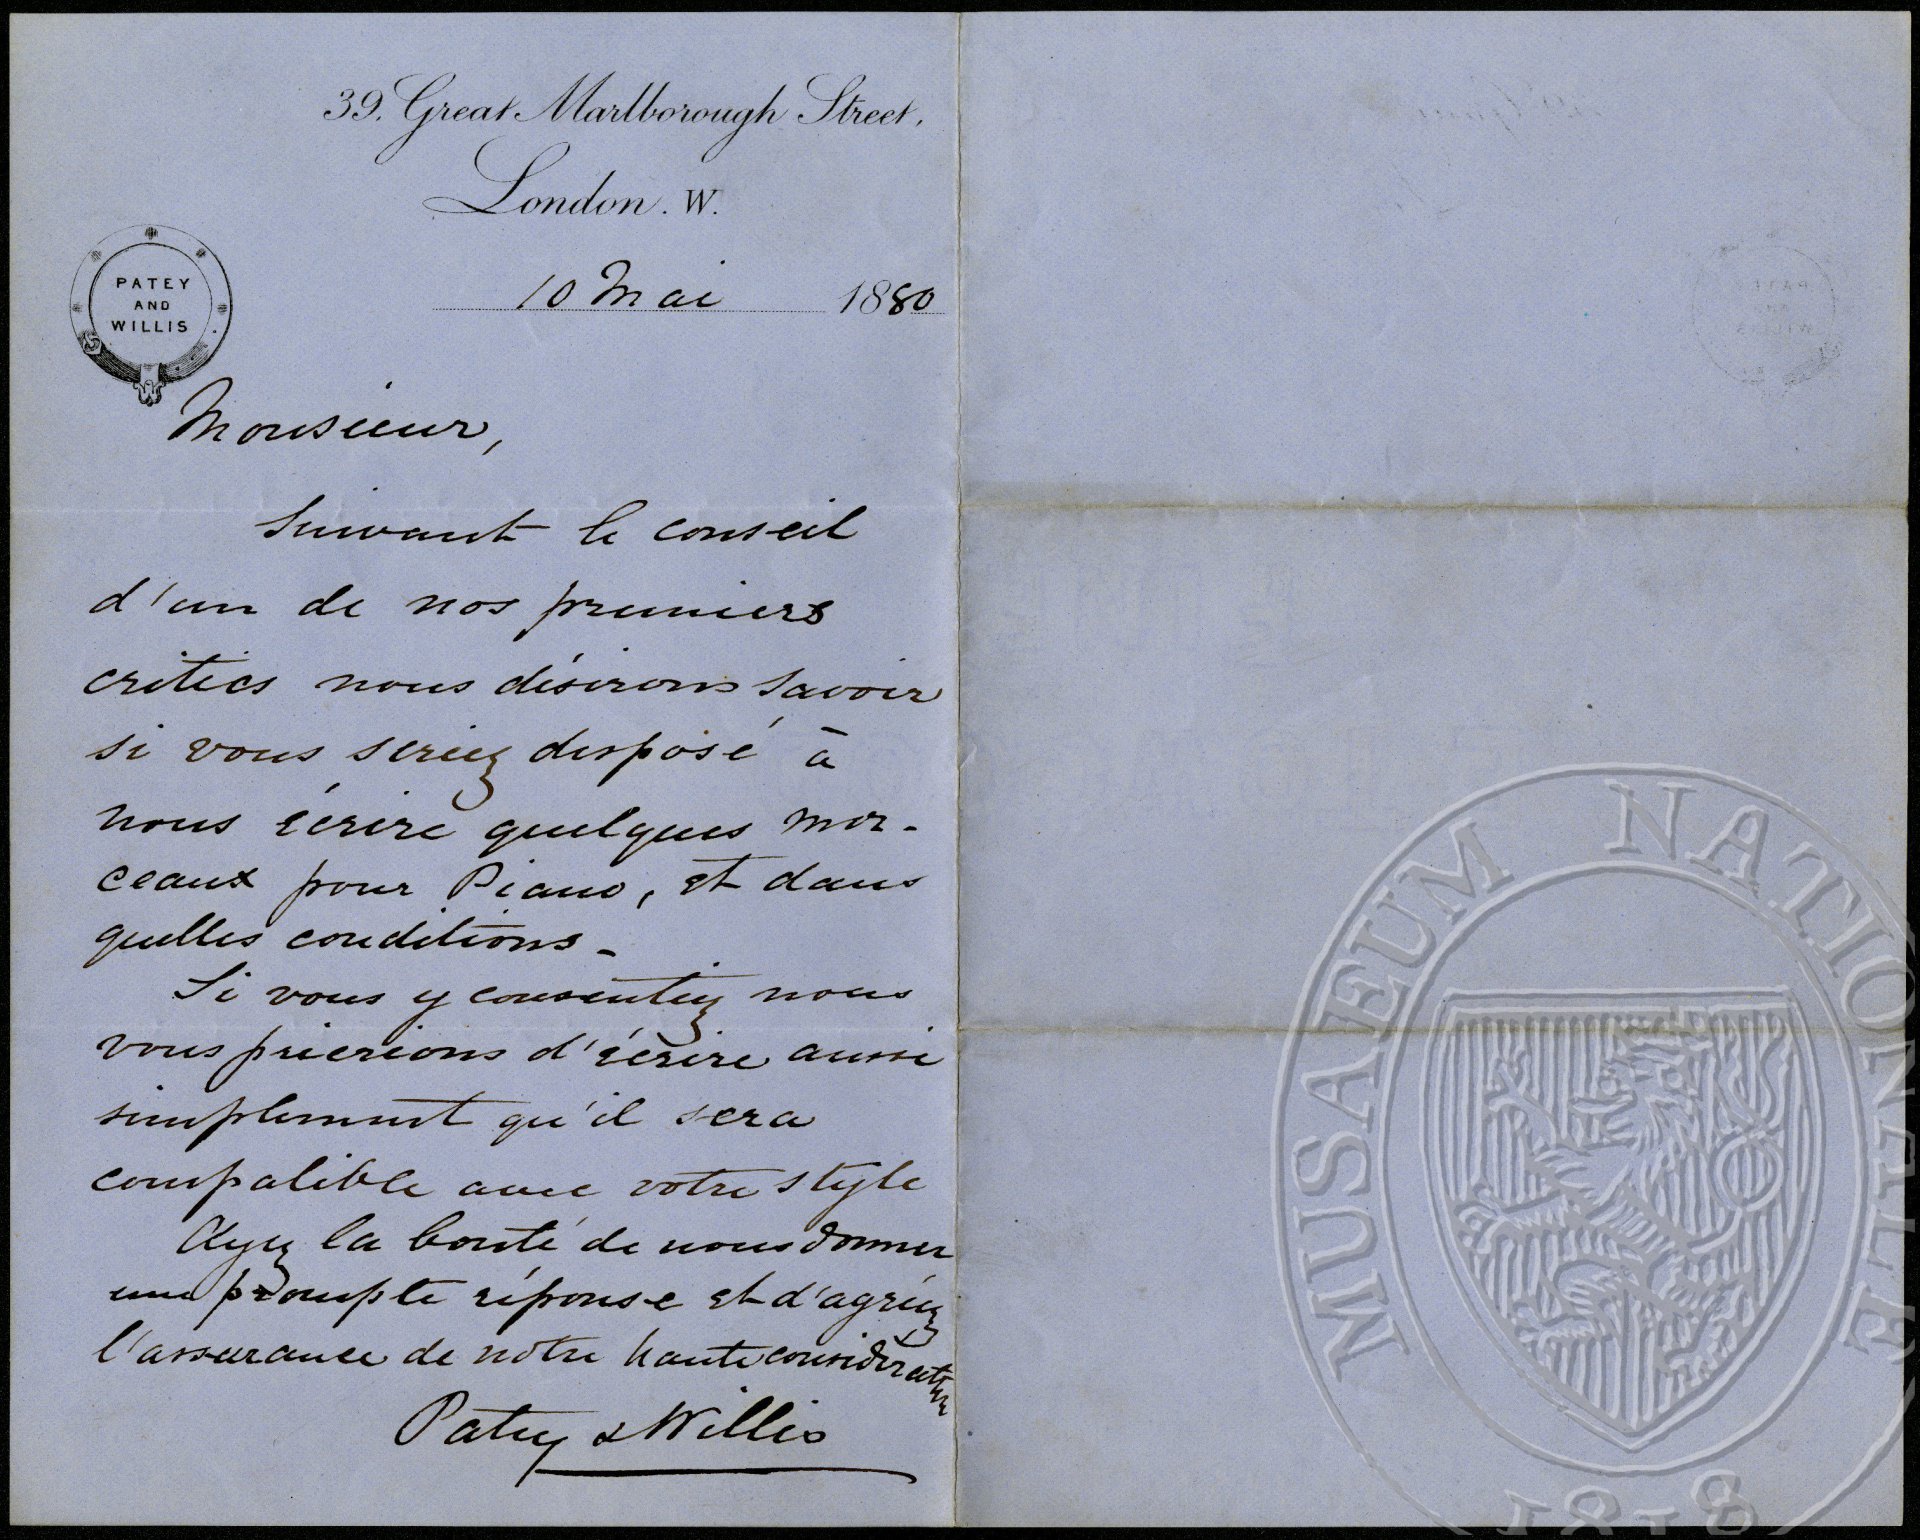 39. Great Marlborough Street.
London. W.
PATEY
AND
WILLIS
10 Mai 1880
Monsieur,
Suivant le conseil
d'un de nos premiers
critics nous désirons savoir
si vous seriez disposé à
nous écrire quelques mor-
ceaux pour Piano, et dans
quelles conditions -
Si vous y consentiez nous
vous prierions d'écrire aussi
simplement qu'il sera
compatible avec votre style
Ayez la bonté de nous donner
une prompte réponse et d'agréez
l'assurance de notre haute consideration
Patey & Willis
MUSAEUM NATIONALE
1818